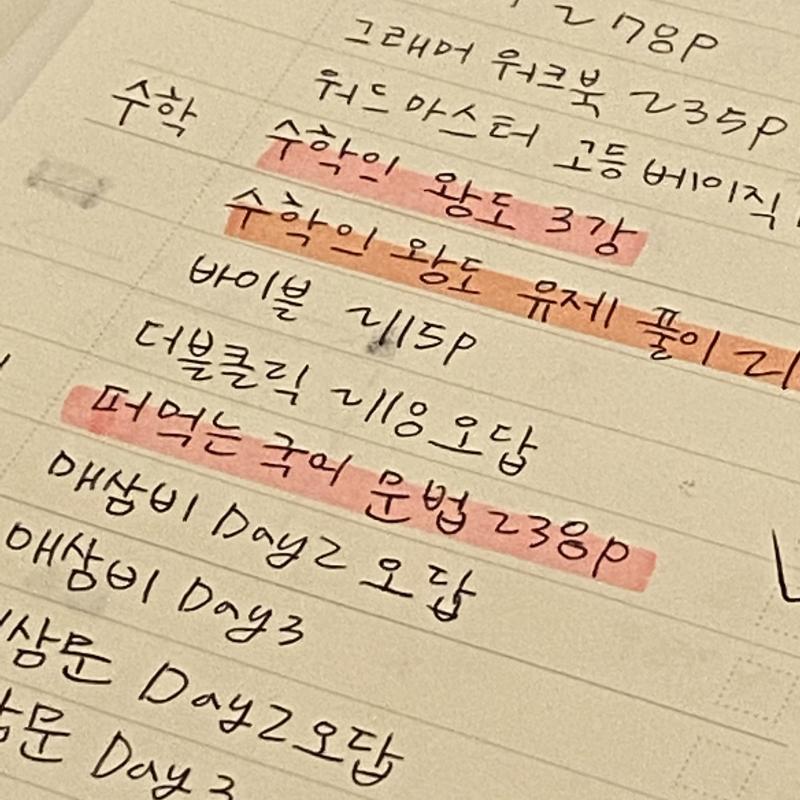 278p
그래머 워크북 ~235p
워드마스터 고등 베이직
수학 수학의 왕도 3강
수학의 왕도 유제 풀이 21
바이블 ~115p
더블클릭 ~118 오답
떠먹는 국어 문법 ~238p
매삼비 Day2 오답
매삼비 Day3
삼문 Day2 오답
삼문 Day3